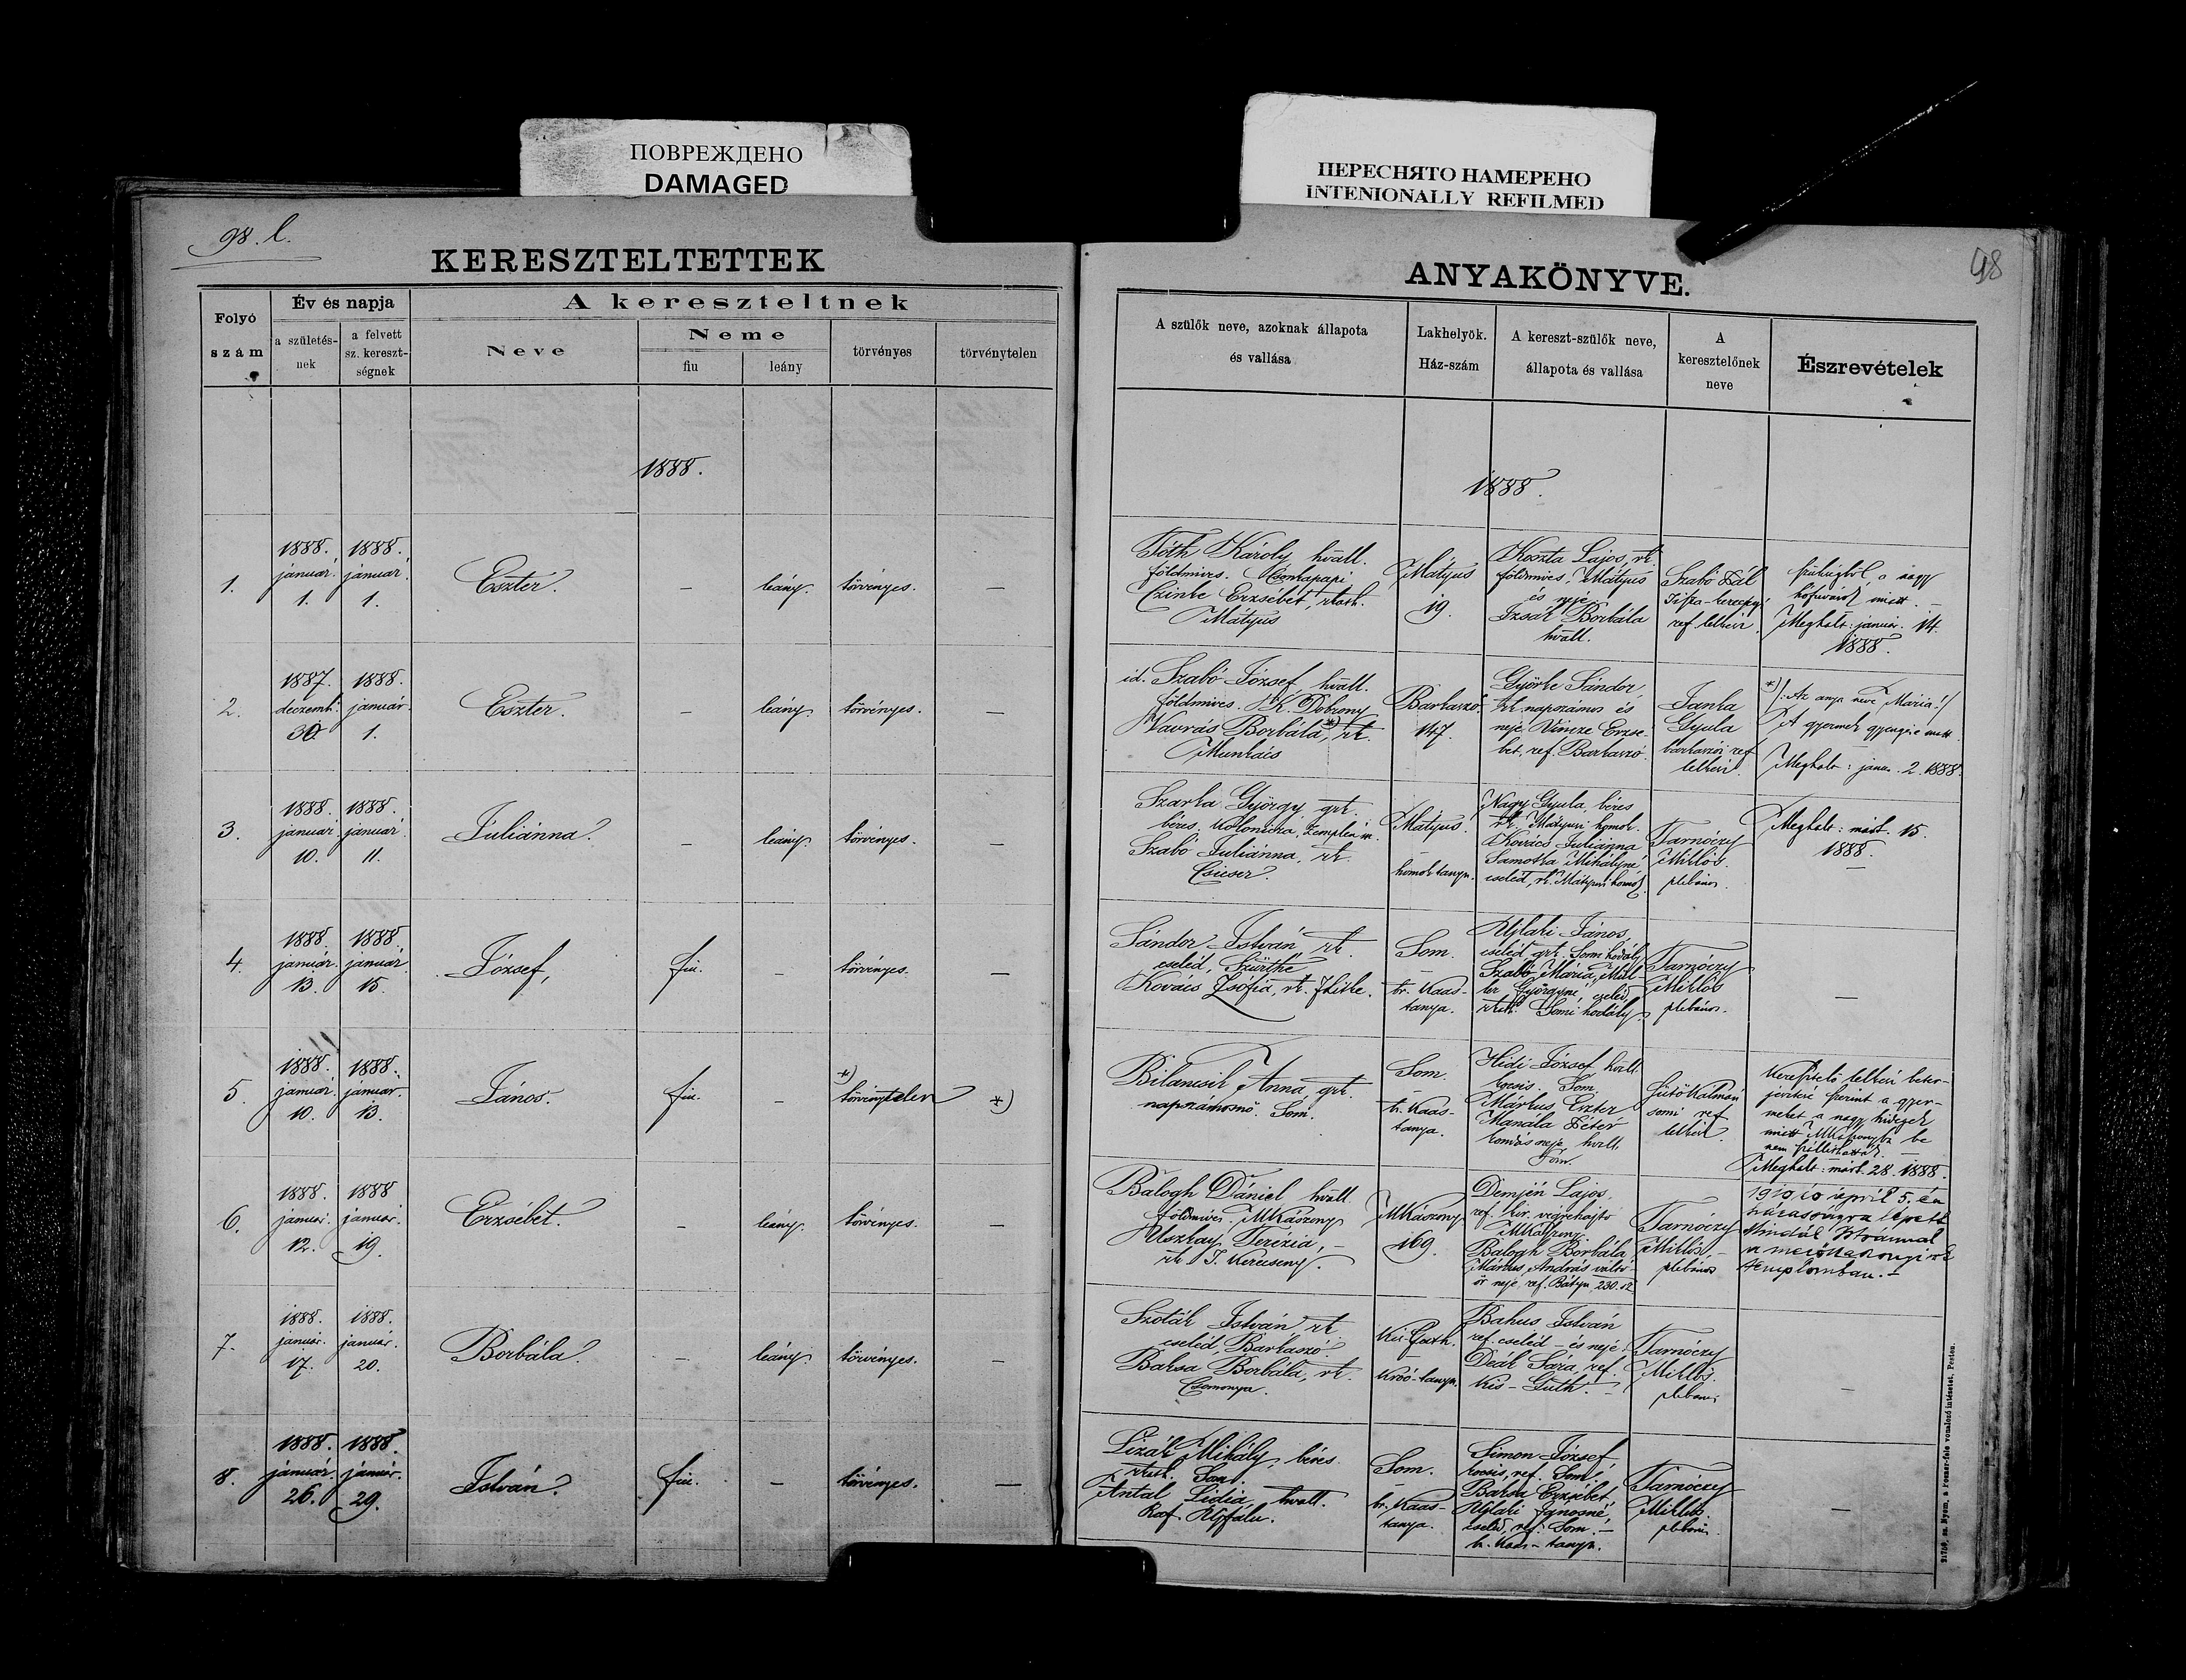 ПОВРЕЖДЕНО
DAMAGED
ПЕРЕСНЯТО НАМЕРЕНО
INTENIONALLY REFILMED
98. l.
KERESZTELTETTEK
Folyó
szám
Év és napja
a születés-
nek
a felvett
sz. kereszt-
ségnek
A kereszteltnek
Neve
Neme
fiu
leány
törvényes
törvénytelen
1888.
1.
1888.
január
1.
1888.
január
1.
Eszter.
–
leány.
törvényes.
–
2.
1887.
deczemb.
30.
1888.
január.
1.
Eszter.
–
leány.
törvényes.
–
3.
1888.
január
10.
1888.
január
11.
Juliánna.
–
leány.
törvényes.
–
4.
1888.
január
13.
1888.
január
15.
József,
fiu.
–
törvényes.
–
5.
1888.
január
10.
1888.
január.
13.
János.
fiu.
–
*)
törvénytelen
*)
6.
1888.
január.
12.
1888
január.
19.
Erzsébet.
–
leány.
törvényes.
–
7.
1888.
január.
17.
1888.
január.
20.
Borbála.
–
leány.
törvényes.
–
8.
1888.
január.
26.
1888.
január.
29.
István.
fiu.
–
törvényes.
–
98
ANYAKÖNYVE.
A szülők neve, azoknak állapota
és vallása
Lakhelyök.
Ház-szám
A kereszt-szülők neve,
állapota és vallása
A
keresztelőnek
neve
Észrevételek
1888.
Tóth Károly hvall.
földmives. Csonkapapi
Czinke Erzsébet, rkath.
Mátyus
Mátyus
19.
Koszta Lajos, rk.
földmives, Mátyus
és neje
Izsák Borbála
hvall.
Szabó Pál
Tisza-kerecseny
ref lelkész
a nagy
hófuvások miatt. –
Meghalt: január. 14.
1888.
id. Szabó József hvall.
földmives. K. Dobrony
Vavrás Borbála,*) rk.
Munkács
Barkaszó.
147.
Györke Sándor,
hk. napszámos és
neje Vincze Erzsé-
bet, ref. Barkaszó.
Janka
Gyula
barkaszói ref
lelkész.
*) /: Az anya neve Mária! /
A gyermek gyengesége miatt.
Meghalt: janu. 2. 1888.
Szarka György grk.
béres. Kolonicza, Zemplén m.
Szabó Juliánna, rk.
Csicser.
Mátyus.
–
homok tanya.
Nagy Gyula, béres
rk. Mátyusi homok.
Kovács Julianna
Samoska Mihályné,
cseléd, rk. Mátyusi homok.
Tarnóczy
Miklós.
plébános.
Meghalt: márt. 15.
1888.
–
Sándor István rk.
cseléd, Szürthe
Kovács Zsófia, rk.
Som.
–
br. Kaas-
tanya.
Ujlaki János,
cseléd, grk. Somi hodály
Szabó Mária, Mül-
ler Györgyné, cseléd,
rkath. Somi hodály.
Tarnóczy
Miklós
plébános.
–
Bilancsik Anna, grk.
napszámosnő. Som.
Som.
–
br. Kaas-
tanya.
Hidi József hvall.
kocsis. Som.
Márkus Eszter
Manála Péter
kondás neje hvall.
Som.
Sütő Kálmán
somi ref
lelkész.
Keresztelő lelkész beter-
jesztése szerint a gyer-
meket a nagy hidegek
miatt MKászonyba be
nem szállithatták. –
Meghalt: márt. 28. 1888.
Balogh Dániel hvall.
földmives. MKászony
Uszkay Terézia, –
rk. T. Kerecseny.
MKászony
169.
Demjén Lajos,
ref. kir. végrehajtó
MKászony.
Balogh Borbála
Márkus András váltó-
őr neje, ref. Bátyu, 230. sz.
Tarnóczy
Miklós, –
plébános
1910 április 5. én
házasságra lépett
Istvánnal
a mezőkaszonyi rk
templomban. –
Szoták István rk
cseléd, Barkaszó.
Baksa Borbála, rk.
Csomonya.
Kis-Guth.
–
Króó-tanya.
Bakus István
ref. cseléd – és neje
Deák Sára, ref.
Kis-Guth. –
Tarnóczy
Miklós.
plébános
–
Lizák Mihály, béres.
rkath. Som.
Antal Lidia hvall.
Raf. Ujfalu.
Som.
–
br. Kaas-
tanya.
Simon József
kocsis, ref. Som.
Baksa Erzsébet,
Ujlaki Jánosné,
cseléd, ref. Som. –
br. Kaas-tanya.
Tarnóczy
Miklós.
plébános
–